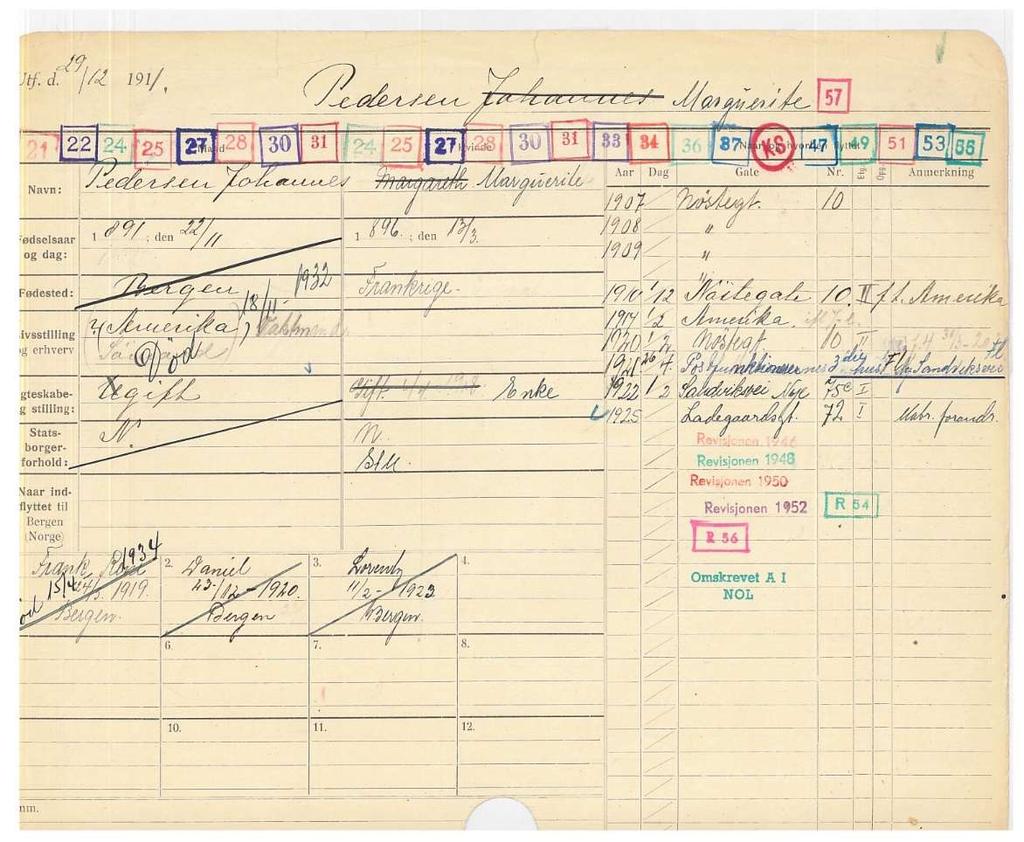 Utf. d. 29/12 1911.
Pedersen Johannes Marguerite 57
21 22 24 25 27 28 30 31 24 25 27 28 30 31 33 34 36 37 KS 47 49 51 53 56
Aar Dag Gate Nr. Etg. Opg. Anmerkning
Navn: Pedersen Johannes Margareth Marguerite
Fødselsaar og dag: 1891, den 22/11 1896, den 13/3.
Fødested: Bergen Frankrige.
Livsstilling og erhverv
(Amerika) 18/11 - 1932
Død
Egteskabelig stilling: Ugift Gift Enke
Statsborgerforhold: N. N.
Naar indflyttet til Bergen (Norge)
1907 Nöstegt. 10
1908 "
1909 "
1910 1/12 Nöstegate 10. II f.t. Amerika
1917 1/2 Amerika.
1920 1/2 Nöstegt 10 II
1921 26/4 Postfunktionærernes 3die hus
1922 1/2 Sandviksvei Nye 75c I
1925 Ladegaardsgt. 72 I Mabr. forandr.
Revisjonen 1946
Revisjonen 1948
Revisjonen 1950
Revisjonen 1952 R 54
R 56
Omskrevet A I
NOL
Frank 1934
15/4 1919.
Bergen.
2. Daniel
23/12 - 1920.
Bergen
3. Lorentz
11/2 - 1923
Bergen.
4.
6. 7. 8.
10. 11. 12.